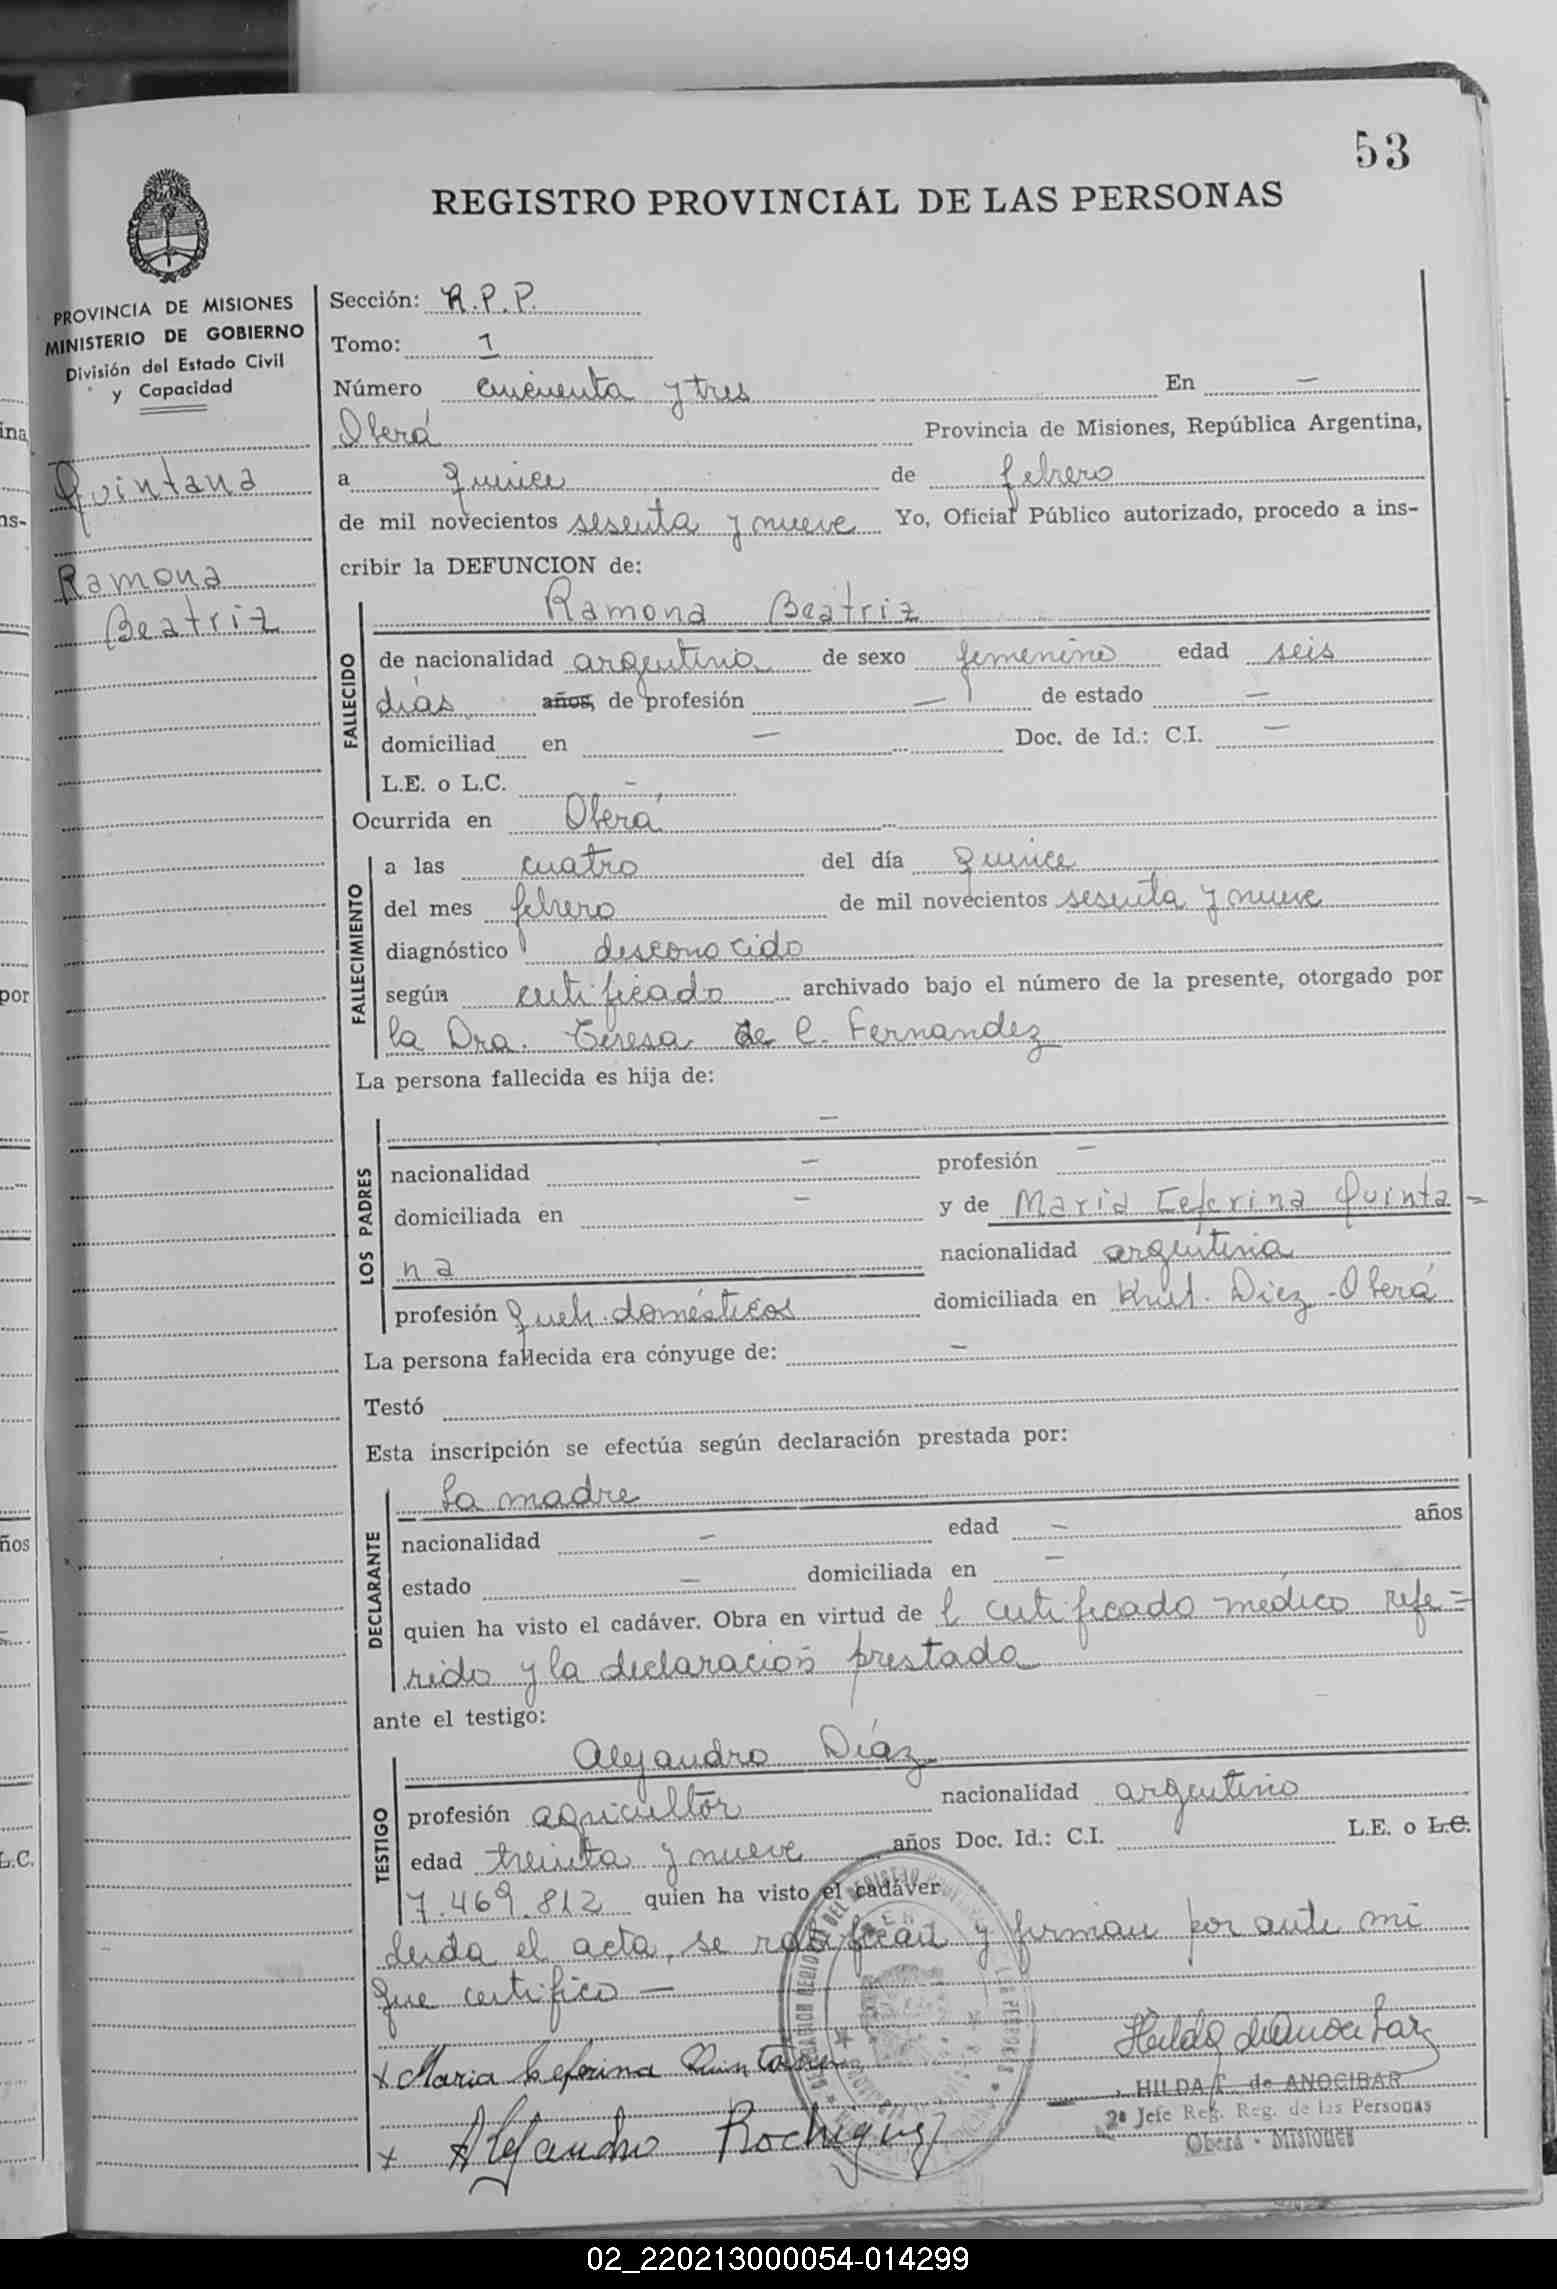 53
REGISTRO PROVINCIAL DE LAS PERSONAS
PROVINCIA DE MISIONES
MINISTERIO DE GOBIERNO
División del Estado Civil
y Capacidad
Quintana
Ramona
Beatriz
Sección: R.P.P.
Tomo: 1
Número cincuenta y tres En —
Oberá Provincia de Misiones, República Argentina,
a quince de febrero
de mil novecientos sesenta y nueve Yo, Oficial Público autorizado, procedo a ins-
cribir la DEFUNCION de:
FALLECIDO
Ramona Beatriz
de nacionalidad argentina de sexo femenino edad seis
días años, de profesión — de estado —
domiciliad en — Doc. de Id.: C.I. —
L.E. o L.C. -
Ocurrida en Oberá
FALLECIMIENTO
a las cuatro del día quince
del mes febrero de mil novecientos sesenta y nueve
diagnóstico desconocido
según certificado archivado bajo el número de la presente, otorgado por
la Dra. Teresa de C. Fernandez
La persona fallecida es hija de:
LOS PADRES
-
nacionalidad — profesión —
domiciliada en — y de Maria Ceferina Quinta=
na nacionalidad argentina
profesión queh. domésticos domiciliada en Diez - Oberá
La persona fallecida era cónyuge de: —
Testó
Esta inscripción se efectúa según declaración prestada por:
DECLARANTE
La madre
nacionalidad — edad — años
estado — domiciliada en —
quien ha visto el cadáver. Obra en virtud de l certificado médico refe=
rido y la declaración prestada
ante el testigo:
TESTIGO
Alejandro Díaz
profesión agricultor nacionalidad argentino
edad treinta y nueve años Doc. Id.: C.I. L.E. o L.C.
7.469.812 quien ha visto el cadáver
leida el acta, se ratifican y firman por ante mi
que certifico —
x Maria Ceferina Quintana
x Alejandro Rodriguez
HILDA T. de ANOCIBAR
2ª Jefe Reg. Reg. de las Personas
Oberá - Misiones
ina,
ns-
por
ños
L.C.
02_220213000054-014299